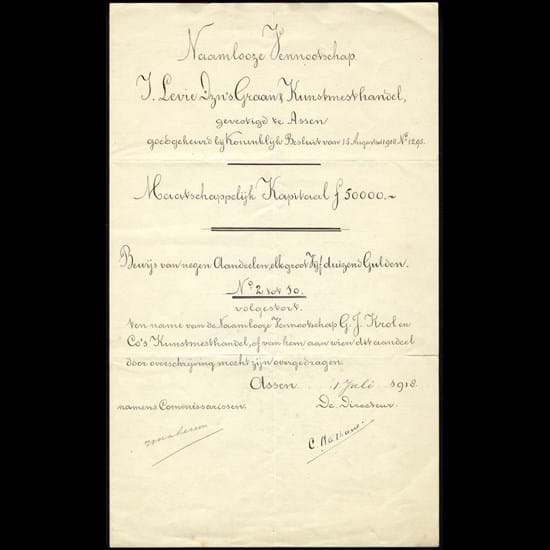 Naamlooze Vennootschap
I. Levie Dzn's Graan & Kunstmesthandel,
gevestigd te Assen
goedgekeurd bij Koninklijk Besluit van 15 Augustus 1910 No 1295.
Maatschappelijk Kapitaal ƒ 50000.~
Bewijs van negen Aandeelen, elk groot Vijf duizend Gulden.
No 2 tot 10.
volgestort.
ten name van de Naamlooze Vennootschap G. J. Krol en
Co's Kunstmesthandel, of van hem aan wien dit aandeel
door overschrijving mocht zijn overgedragen
Assen 1 Juli 1918.
namens Commissarissen. De Directeur.
C. Nathans